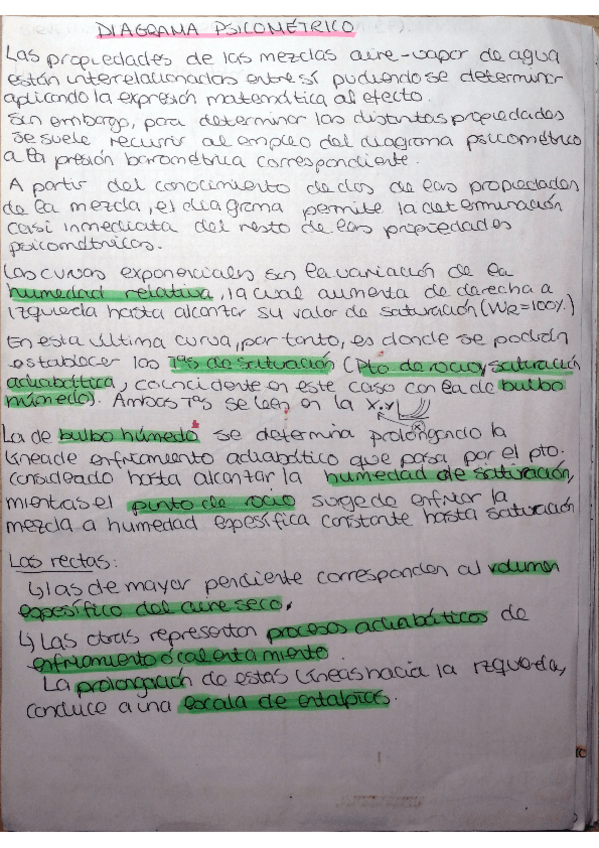 DIAGRAMA PSICOMÉTRICO
Las propiedades de las mezclas aire-vapor de agua
están interrelacionadas entre sí pudiendo se determinar
aplicando la expresión matemática al efecto.
Sin embargo, para determinar las distintas propiedades
se suele recurrir al empleo del diagrama psicométrico
a la presión barométrica correspondiente.
A partir del conocimiento de dos de las propiedades
de la mezcla, el diagrama permite la determinación
casi inmediata del resto de las propiedades
psicométricas.
Las curvas exponenciales sin la variación de la
humedad relativa, la cual aumenta de derecha a
izquierda hasta alcanzar su valor de saturación (WR=100%)
En esta última curva, por tanto, es donde se podrán
establecer las Tªs de saturación (Pto de rocío, saturación
adiabática, coincidente en este caso con la de bulbo
húmedo). Ambas Tªs se leen en la X.Y
La de bulbo húmedo se determina prolongando la
línea de enfriamiento adiabático que pasa por el pto.
considerado hasta alcanzar la humedad de saturación,
mientas el punto de rocío surge de enfriar la
mezcla a humedad espesífica constante hasta saturación
Las rectas:
↳ las de mayor pendiente corresponden al volumen
espesífico del aire seco.
↳ Las otras representan procesos adiabáticos de
enfriamiento o calentamiento
La prolongación de estas líneas hacia la izquierda,
conduce a una escala de entalpías.